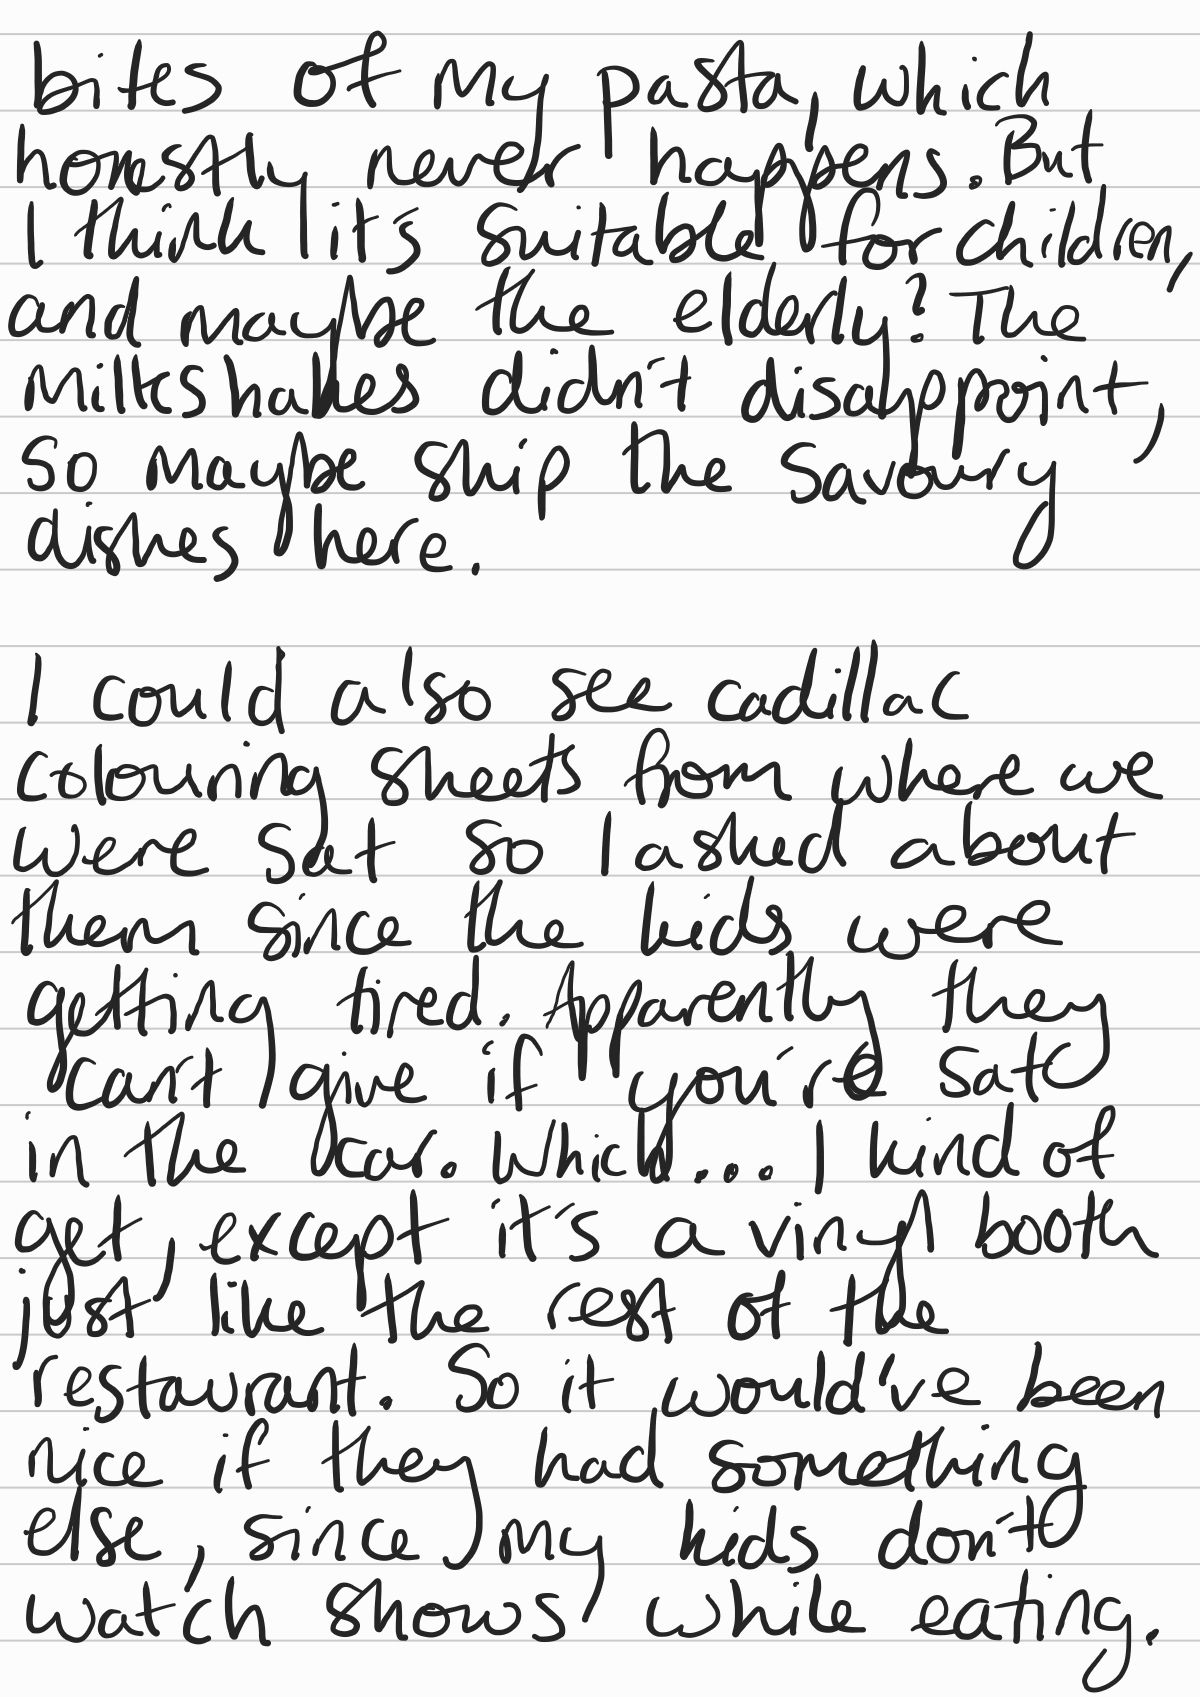 bites of my pasta, which
honestly never happens. But
I think it's suitable for children,
and maybe the elderly? The
milkshakes didn't disappoint,
so maybe skip the savoury
dishes here.
I could also see cadillac
colouring sheets from where we
were sat so I asked about
them since the kids were
getting tired. Apparently they
can't give if you're sat
in the car. Which... I kind of
get, except it's a vinyl booth
just like the rest of the
restaurant. So it would've been
nice if they had something
else, since my kids don't
watch shows while eating.